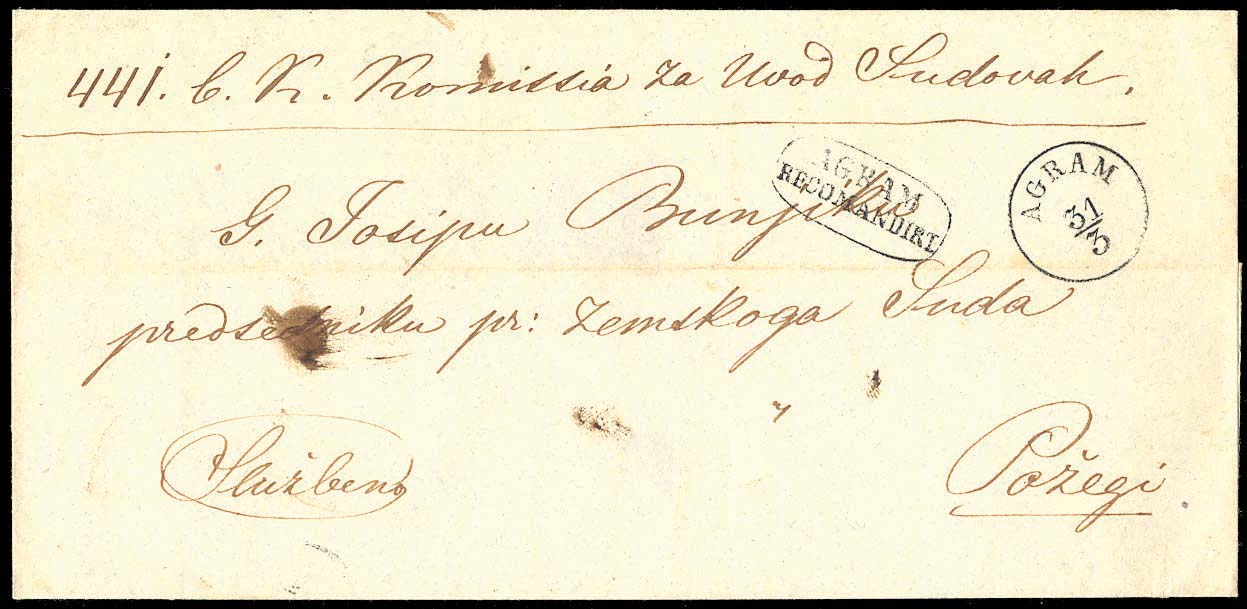 441. C. K. Komissia za Uvod Sudovah.
AGRAM
RECOMANDIRT
AGRAM
31/3
G. Josipu
predsedniku pr: Zemskoga Suda
u
Službeno
Požegi